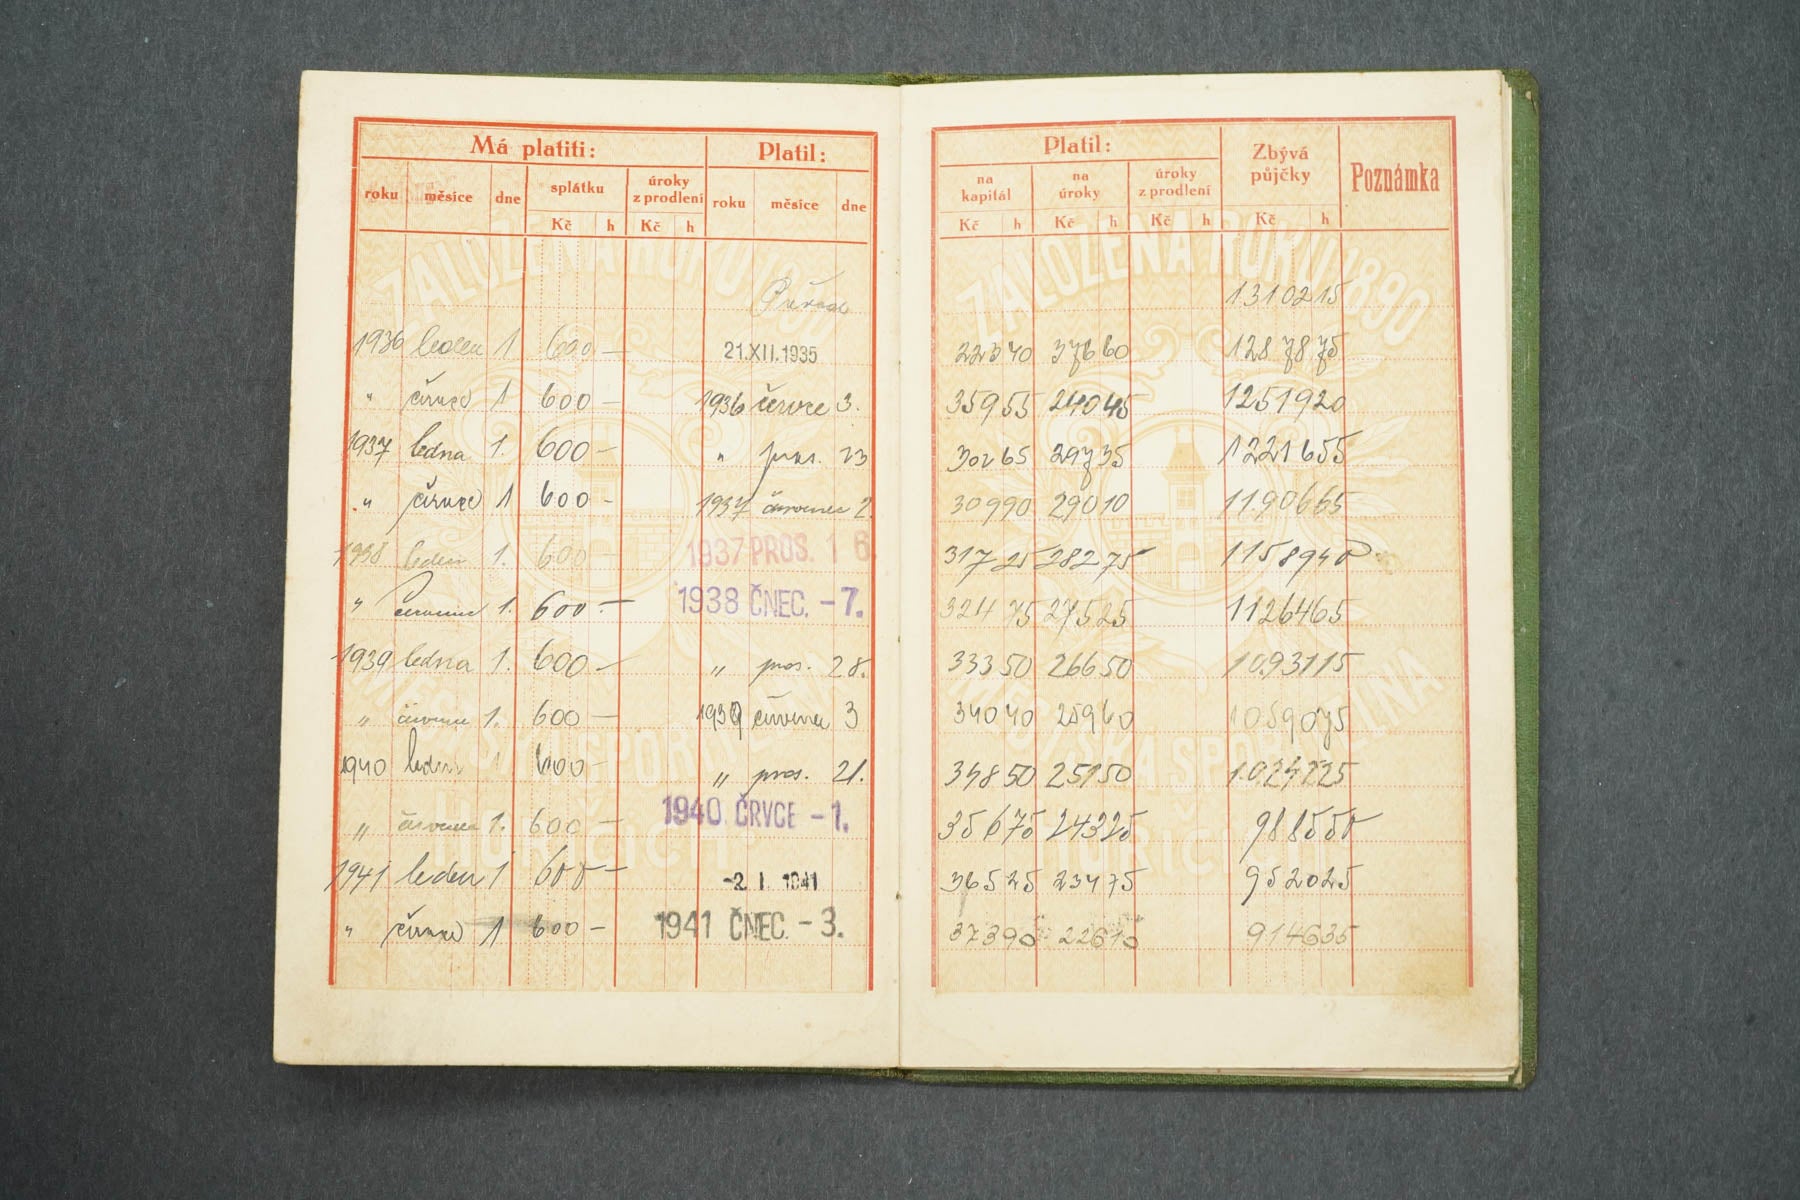 Má platiti: Platil:
roku měsíce dne splátku úroky z prodlení roku měsíce dne
Kč h Kč h
Převod
1936 leden 1 600 — 21.XII.1935
" červec 1 600 — 1936 červce 3.
1937 ledna 1. 600 — " pros. 23
" červec 1 600 — 1937 červenec 2.
1938 leden 1. 600 — 1937 PROS. 16
" červenec 1. 600 — 1938 ČNEC. - 7.
1939 ledna 1. 600 — " pros. 28.
" červenec 1. 600 — 1939 července 3
1940 leden 1 600 — " pros. 21.
" červenec 1. 600 — 1940 ČRVCE - 1.
1941 leden 1 600 — -2. I. 1941
" červec 1 600 — 1941 ČNEC. - 3.
ZALOŽENA ROKU 1890
MĚSTSKÁ SPOŘITELNA
V HOŘICÍCH
Platil: Zbývá půjčky Poznámka
na kapitál na úroky úroky z prodlení
Kč h Kč h Kč h Kč h
13102 15
223 40 376 60 12878 75
359 55 240 45 12519 20
302 65 297 35 12216 55
309 90 290 10 11906 65
317 25 282 75 11589 40
324 75 275 25 11264 65
333 50 266 50 10931 15
340 40 259 60 10590 75
348 50 251 50 10242 25
356 75 243 25 9885 50
365 25 234 75 9520 25
373 90 226 10 9146 35
ZALOŽENA ROKU 1890
MĚSTSKÁ SPOŘITELNA
V HOŘICÍCH